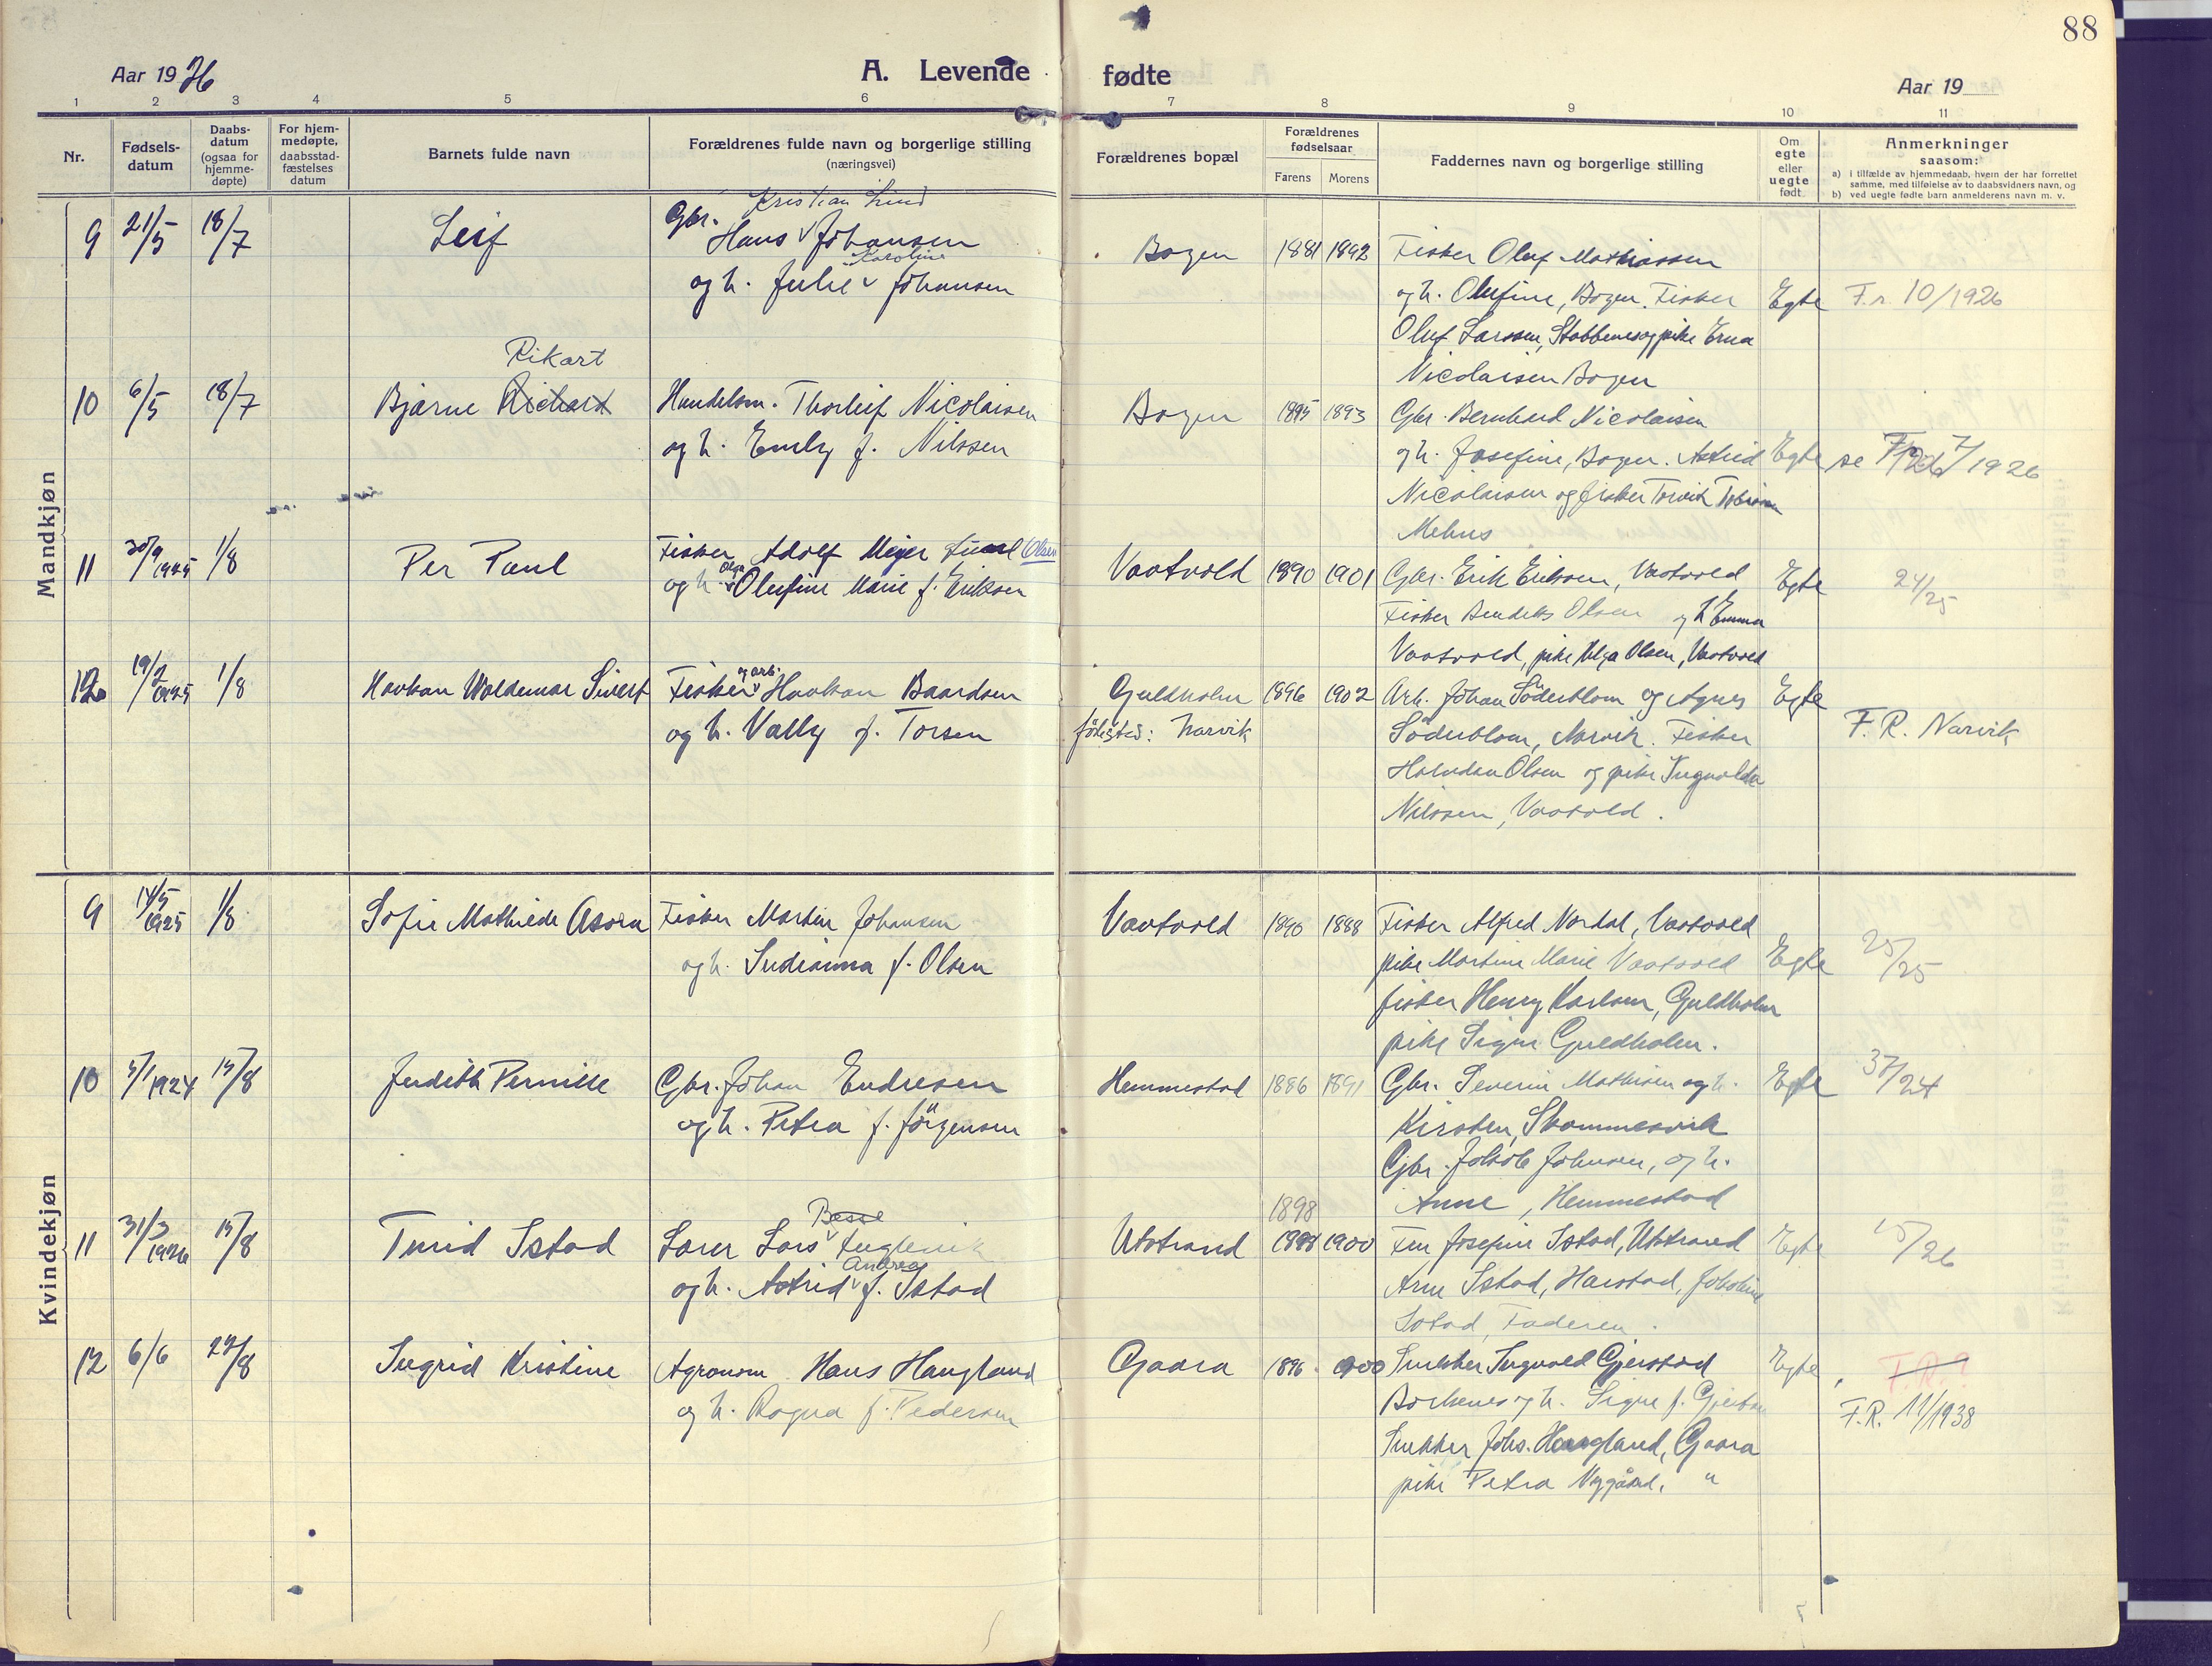 88
Aar 1926
A. Levende fødte
Aar 19
1 2 3 4 5 6 7 8 9 10 11
Nr.
Fødselsdatum
Daabsdatum (ogsaa for hjemmedøpte)
For hjemmedøpte, daabsstadfæstelses datum
Barnets fulde navn
Forældrenes fulde navn og borgerlige stilling (næringsvei)
Forældrenes bopæl
Forældrenes fødselsaar
Farens Morens
Faddernes navn og borgerlige stilling
Om egte eller uegte født.
Anmerkninger saasom:
a) i tilfælde av hjemmedaab, hvem der har forrettet samme, med tilføielse av to daabsvidners navn, og
b) ved uegte fødte barn anmelderens navn m. v.
Mandkjøn
9 21/5 18/7 Leif
Gbr. Kristian Lind
Hans Johansen
Karoline
og h. Julie Johansen
Bogen 1881 1892
Fisker Oluf Mathiassen
og h. Olufine, Bogen. Fisker
Oluf Larssen, Stobbenes og pike Erna
Nicolaisen Bogen
Egte F.r. 10/1926
Rikart
10 6/5 18/7 Bjarne Richard
Handelsm. Thorleif Nicolaisen
og h. Emly f. Nilssen
Bogen 1895 1893
Gbr. Bernhard Nicolaisen
og h. Josefine, Bogen. Astrid
Nicolaisen og fisker Torvik
Mehus
Egte se 7/1926
11 30/9 1925 1/8 Per Paul
Fisker Adolf Meyer Olsen
og h. Olga Olufine Marie f. Eriksen
Vaotvold 1890 1901
Gbr. Erik Eriksen, Vaotvold
Fisker Bendeks Olsen og h Emma
Vaotvold, pike Olga Olsen, Vaotvold
Egte 24/25
12 19/2 1925 1/8 Haakon Waldemar Sivert
og arb.
Fisker Haakon Baardsen
og h. Vally f. Torsen
Guldholm
födested: Narvik
1896 1902
Arb. Johan Söderblom og Agnes
Söderblom, Narvik. Fisker
Halvdan Olsen og pike Ingvalda
Nilssen, Vaotvold.
Egte F. R. Narvik
Kvindekjøn
9 14/5 1925 1/8 Sofie Mathilde Asora
Fisker Martin Johansen
og h. Indianna f. Olsen
Vaotvold 1890 1888
Fisker Alfred Nordal, Vaotvold
pike Martine Marie Vaotvold
fisker Henry Karlsen, Guldholm
pike Signe Guldholm.
Egte 25/25
10 5/1 1924 15/8 Judith Pernille
Gbr. Johan Endresen
og h. Petra f. Jörgensen
Hemmestad 1886 1891
Gbr. Severin Mathisen og h.
Kirsten, Skommesvik
Gbr. Jakob Johnsen, og h.
Anne, Hemmestad
Egte 37/24
11 31/3 1926 15/8 Turid Istad
Besse
Lærer Lars Fuglevik
Andrea
og h. Astrid f. Istad
Utstrand 1898 1898 1900
Fru Josefine Istad, Utstrand
Arne Istad, Harstad, Jakobine
Istad, Faderen.
Egte 15/26
12 6/6 22/8 Ingrid Kristine
Agronom Hans Haugland
og h. Ragna f. Pedersen
Gaara 1896 1900
Snekker Ingvald Gjerstad
Borkenes og h. Signe f.
Snekker Johs. Haugland, Gaara
pike Petra Nygård, "
Egte F.R.?
F.R. 11/1938